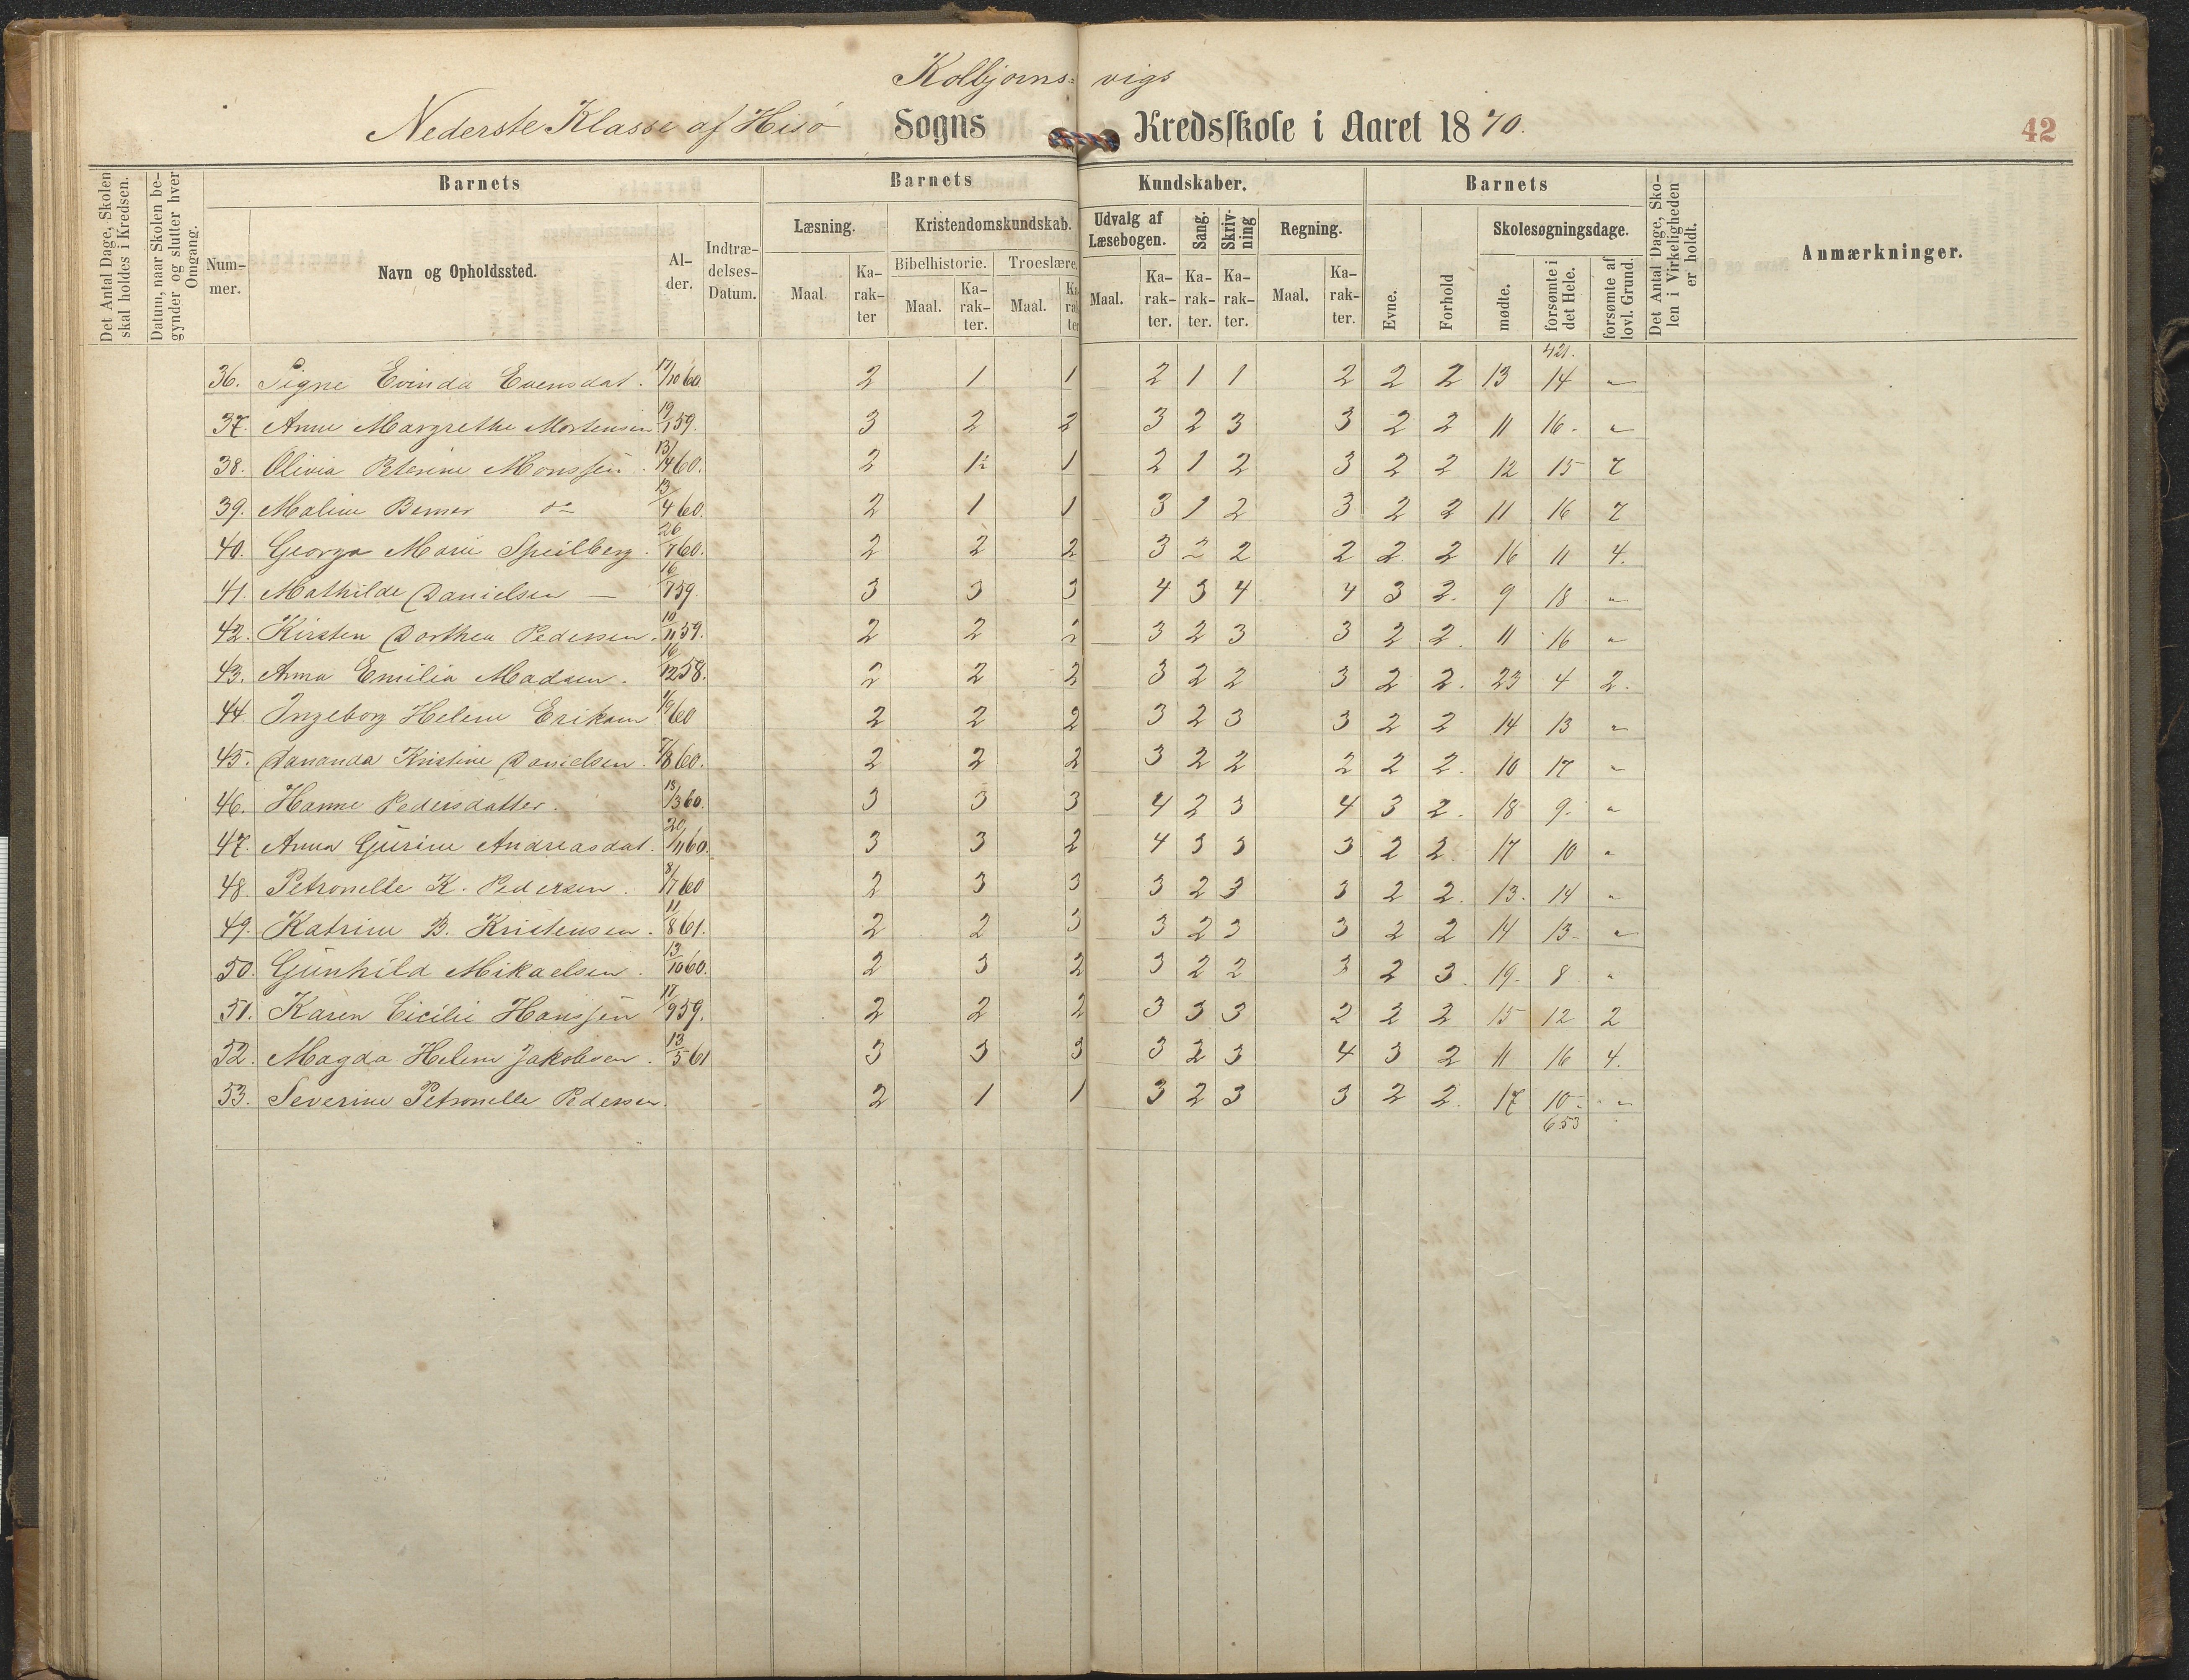 Kolbjørns= vigs
Nederste Klasse af Hisø Sogns Kredsskole i Aaret 1870.
42
Det Antal Dage, Skolen skal holdes i Kredsen.
Datum, naar Skolen begynder og slutter hver Omgang.
Barnets Barnets Kundskaber. Barnets
Nummer. Navn og Opholdssted. Alder. Indtrædelses-Datum.
Læsning. Kristendomskundskab. Udvalg af Læsebogen. Sang. Skrivning Regning. Skolesøgningsdage.
Bibelhistorie. Troeslære.
Maal. Karakter Maal. Karakter. Maal. Karakter Maal. Karakter. Karakter. Karakter. Maal. Karakter. Evne. Forhold mødte. forsømte i det Hele. forsømte af lovl. Grund.
Det Antal Dage, Skolen i Virkeligheden er holdt.
Anmærkninger.
421.
36. Signe Evinda Evensdat. 17/10 60 2 1 1 2 1 1 2 2 2 13 14 "
37. Anne Margrethe Mortensen 19/1 59. 3 2 2 3 2 3 3 2 2 11 16. "
38. Olivia Peterine Monssen 13/4 60. 2 1½ 1 2 1 2 3 2 2 12 15 7
39. Maline Berner do 13/4 60. 2 1 1 3 1 2 3 2 2 11 16 7
40. Georga Marie Speilberg. 26/7 60. 2 2 2 3 2 2 2 2 2 16 11 4.
41. Mathilde Danielsen — 16/7 59. 3 3 3 4 3 4 4 3 2. 9 18 "
42. Kirsten Dorthea Pedersen. 10/11 59. 2 2 2 3 2 3 3 2 2. 11 16 "
43. Anna Emilia Madsen. 16/12 58. 2 2 2 3 2 2 3 2 2. 23 4 2.
44. Ingeborg Helene Eriksen. 1/9 60 2 2 2 3 2 3 3 2 2 14 13 "
45. Dananda Kristine Danielsen. 7/8 60. 2 2 2 3 2 2 2 2 2. 10 17 "
46. Hanne Pedersdatter. 13/3 60. 3 3 3 4 2 3 4 3 2. 18 9. "
47. Anna Gurine Andreasdat. 20/11 60. 3 3 2 4 3 3 3 2 2. 17 10 "
48. Petronelle K. Pedersen. 8/7 60 2 3 3 3 2 3 3 2 2. 13. 14 "
49. Katrine B. Kristensen. 11/8 61. 2 2 3 3 2 3 3 2 2 14 13 "
50. Gunhild Mikaelsen. 13/10 60. 2 3 2 3 2 2 3 2 3. 19. 8 "
51. Karen Cicilie Hanssen 11/9 59. 2 2 2 3 3 3 2 2 2 15 12 2
52. Magda Helene Jakobsen. 13/5 61 3 3 3 3 2 3 4 3 2 11 16 4.
53. Severine Petronelle Pedersen. 2 1 1 3 2 3 3 2 2. 17 10. "
653